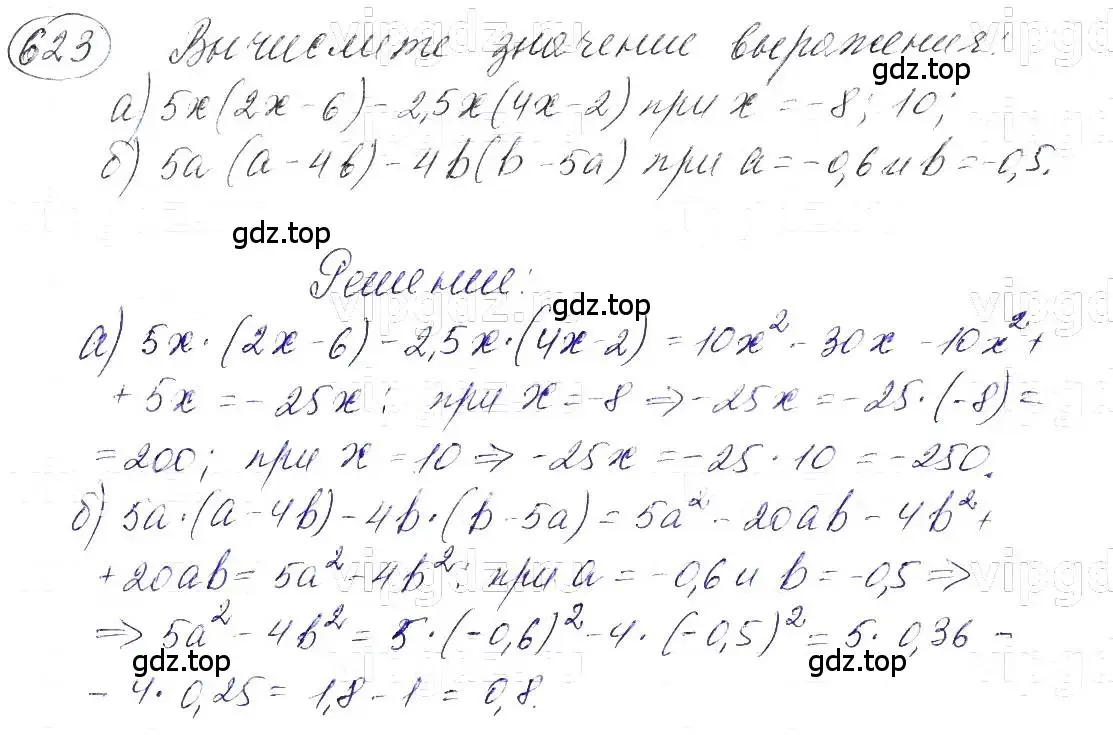 623 Вычислите значение выражения:
gdz.top
а) 5x(2x-6)-2,5x(4x-2) при x=-8; 10;
б) 5a(a-4b)-4b(b-5a) при a=-0,6 и b=-0,5.
gdz.top
Решение:
gdz.top
а) 5x·(2x-6)-2,5x·(4x-2)=10x²-30x-10x²+
+5x=-25x; при x=-8 ⇒ -25x=-25·(-8)=
=200; при x=10 ⇒ -25x=-25·10=-250.
б) 5a·(a-4b)-4b·(b-5a)=5a²-20ab-4b²+
+20ab=5a²-4b²; при a=-0,6 и b=-0,5 ⇒
⇒ 5a²-4b²=5·(-0,6)²-4·(-0,5)²=5·0,36-
gdz.top gdz.top
-4·0,25=1,8-1=0,8.